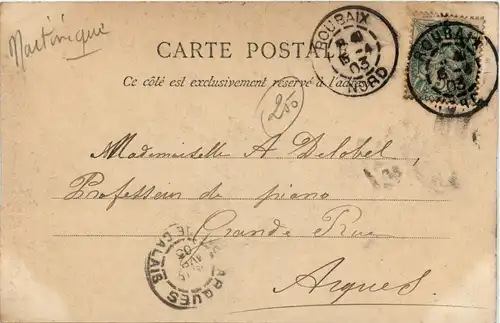 Martinique
CARTE POSTALE
Ce côté est exclusivement réservé à l'adresse
250
ROUBAIX
NORD
16 -4
03
ROUBAIX
03
Mademoiselle A Delobel
Professeur de piano
Grande Rue
Arques
ARQUES
PAS DE CALAIS
03